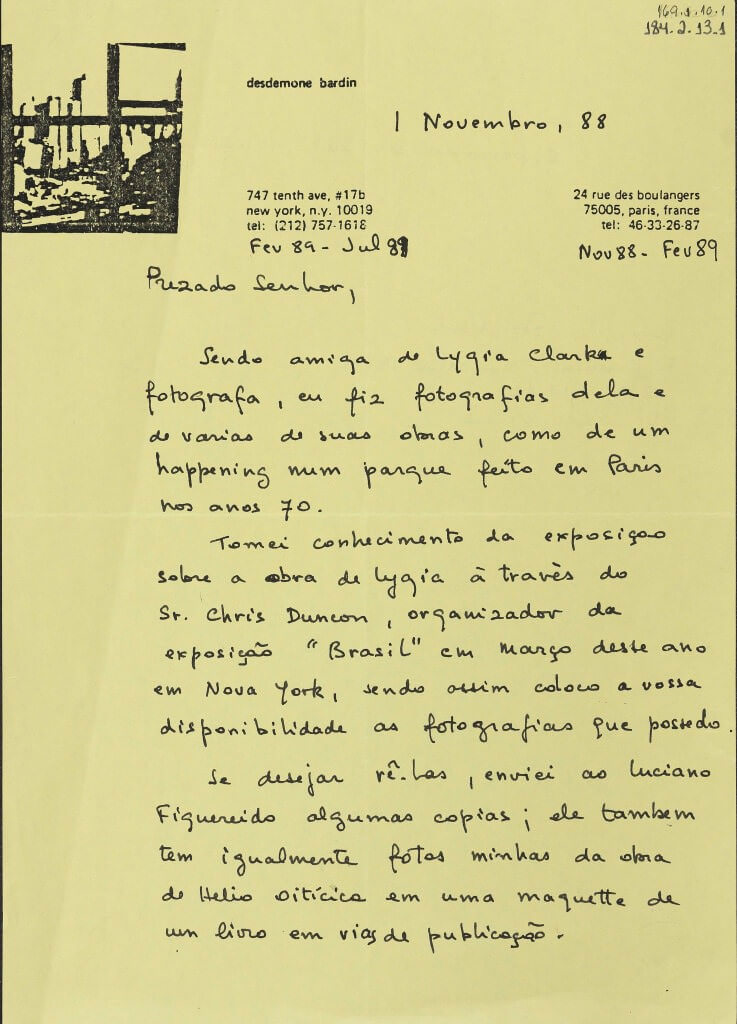 169.1.10.1
184.2.13.1
desdemone bardin
1 Novembro, 88
747 tenth ave, #17b
new york, n.y. 10019
tel: (212) 757-1618
Fev 89 - Jul 89
24 rue des boulangers
75005, paris, france
tel: 46-33-26-87
Nov 88 - Fev 89
Prezado Senhor,
Sendo amiga de Lygia Clark e
fotografa, eu fiz fotografias dela e
de varias de suas obras, como de um
happening num parque feito em Paris
nos anos 70.
Tomei conhecimento da exposiçao
sobre a obra de Lygia à través do
Sr. Chris Duncon, organizador da
exposição "Brasil" em março deste ano
em Nova York, sendo assim coloco a vossa
disponibilidade as fotografias que possedo.
Se desejar rê-las, enviei ao Luciano
Figuereido algumas copias; ele tambem
tem igualmente fotos minhas da obra
de Helio Oitícica em uma maquette de
um livro em vias de publicação.